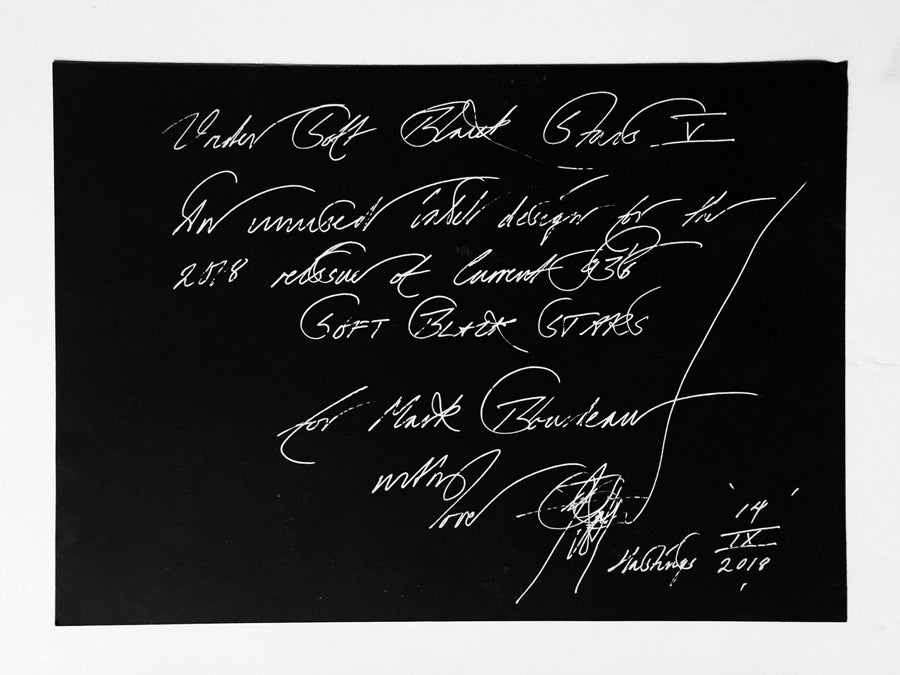 Under Soft Black Stars V
An unused label design for the
2018 reissue of Current 93's
SOFT BLACK STARS
for Mark
with
love
Hastings
14
IX
2018